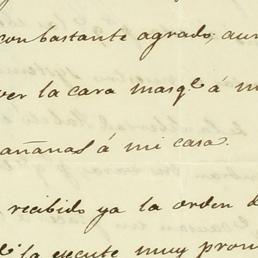 con bastante agrado; aun
ver la cara masq.e á m
añanas á mi casa.
recibido ya la orden d
la ejecute muy pron